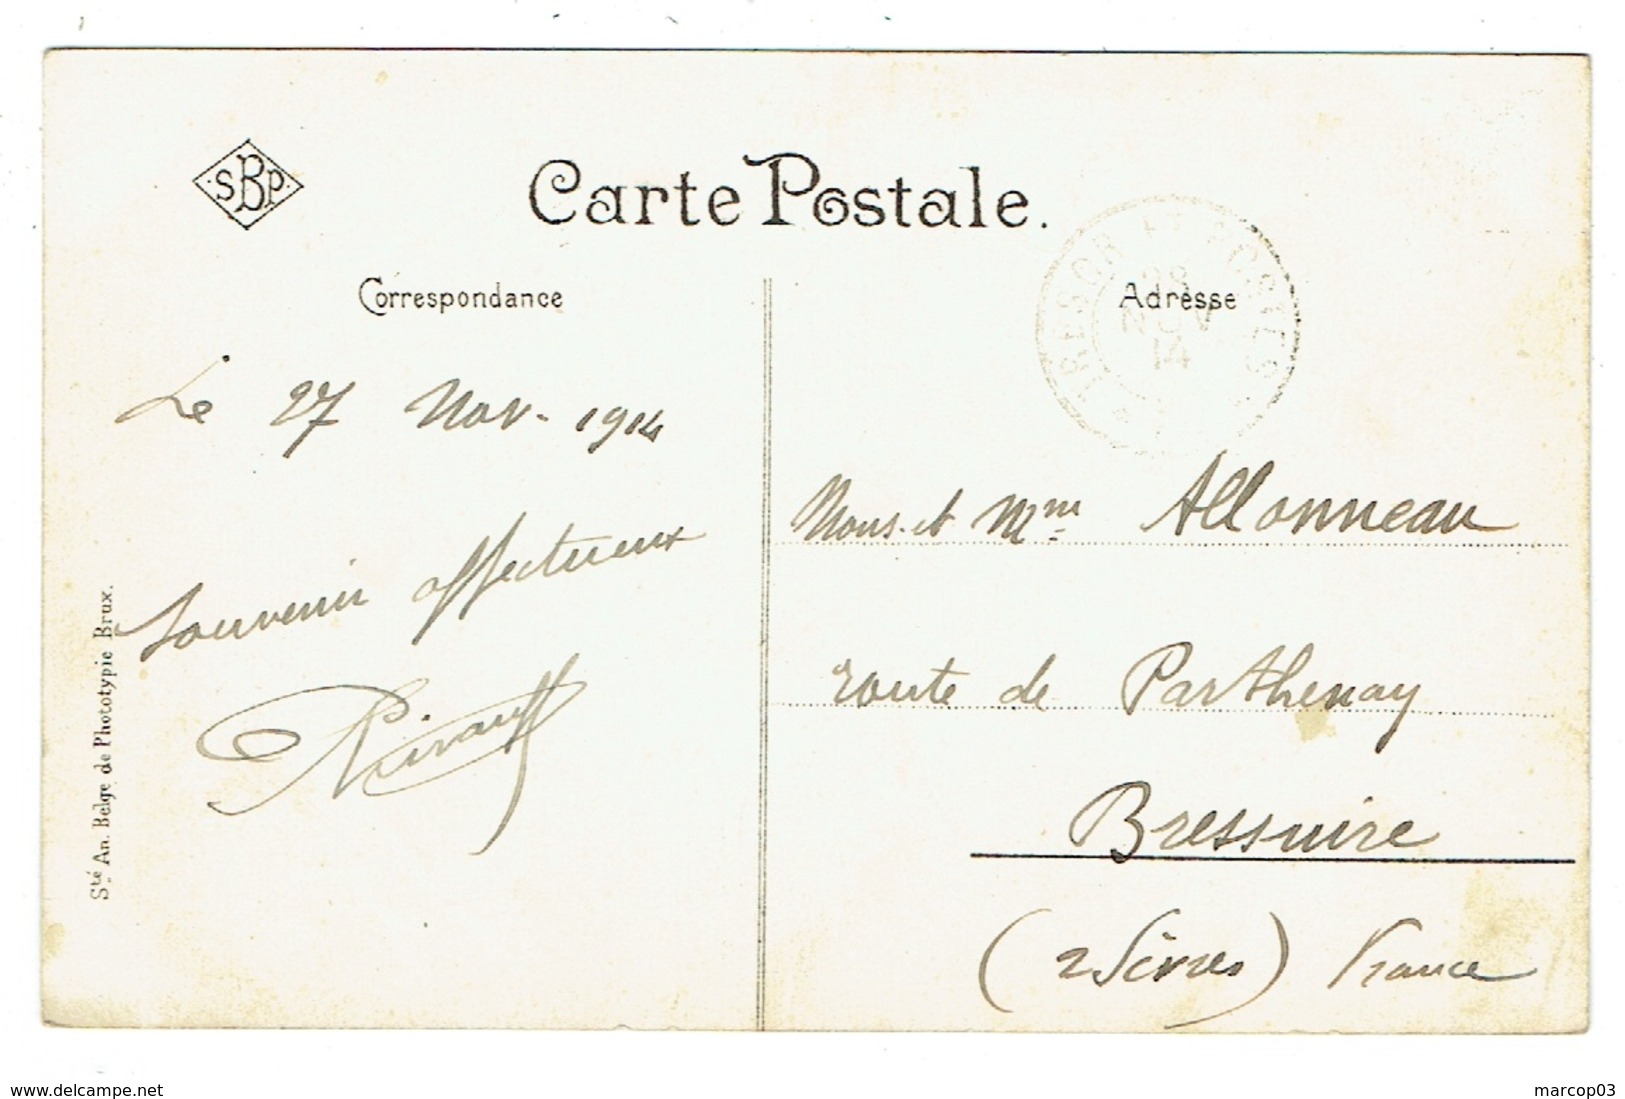 SBP
Carte Postale.
Correspondance
Adresse
TRESOR ET POSTES
28
NOV
14
Le 27 Nov. 1914
Souvenir affectueux
Mons. et Mme Allonneau
route de Parthenay
Bressuire
(2 Sèvres) France
Sté An. Belge de Phototypie Brux.
www.delcampe.net
marcop03